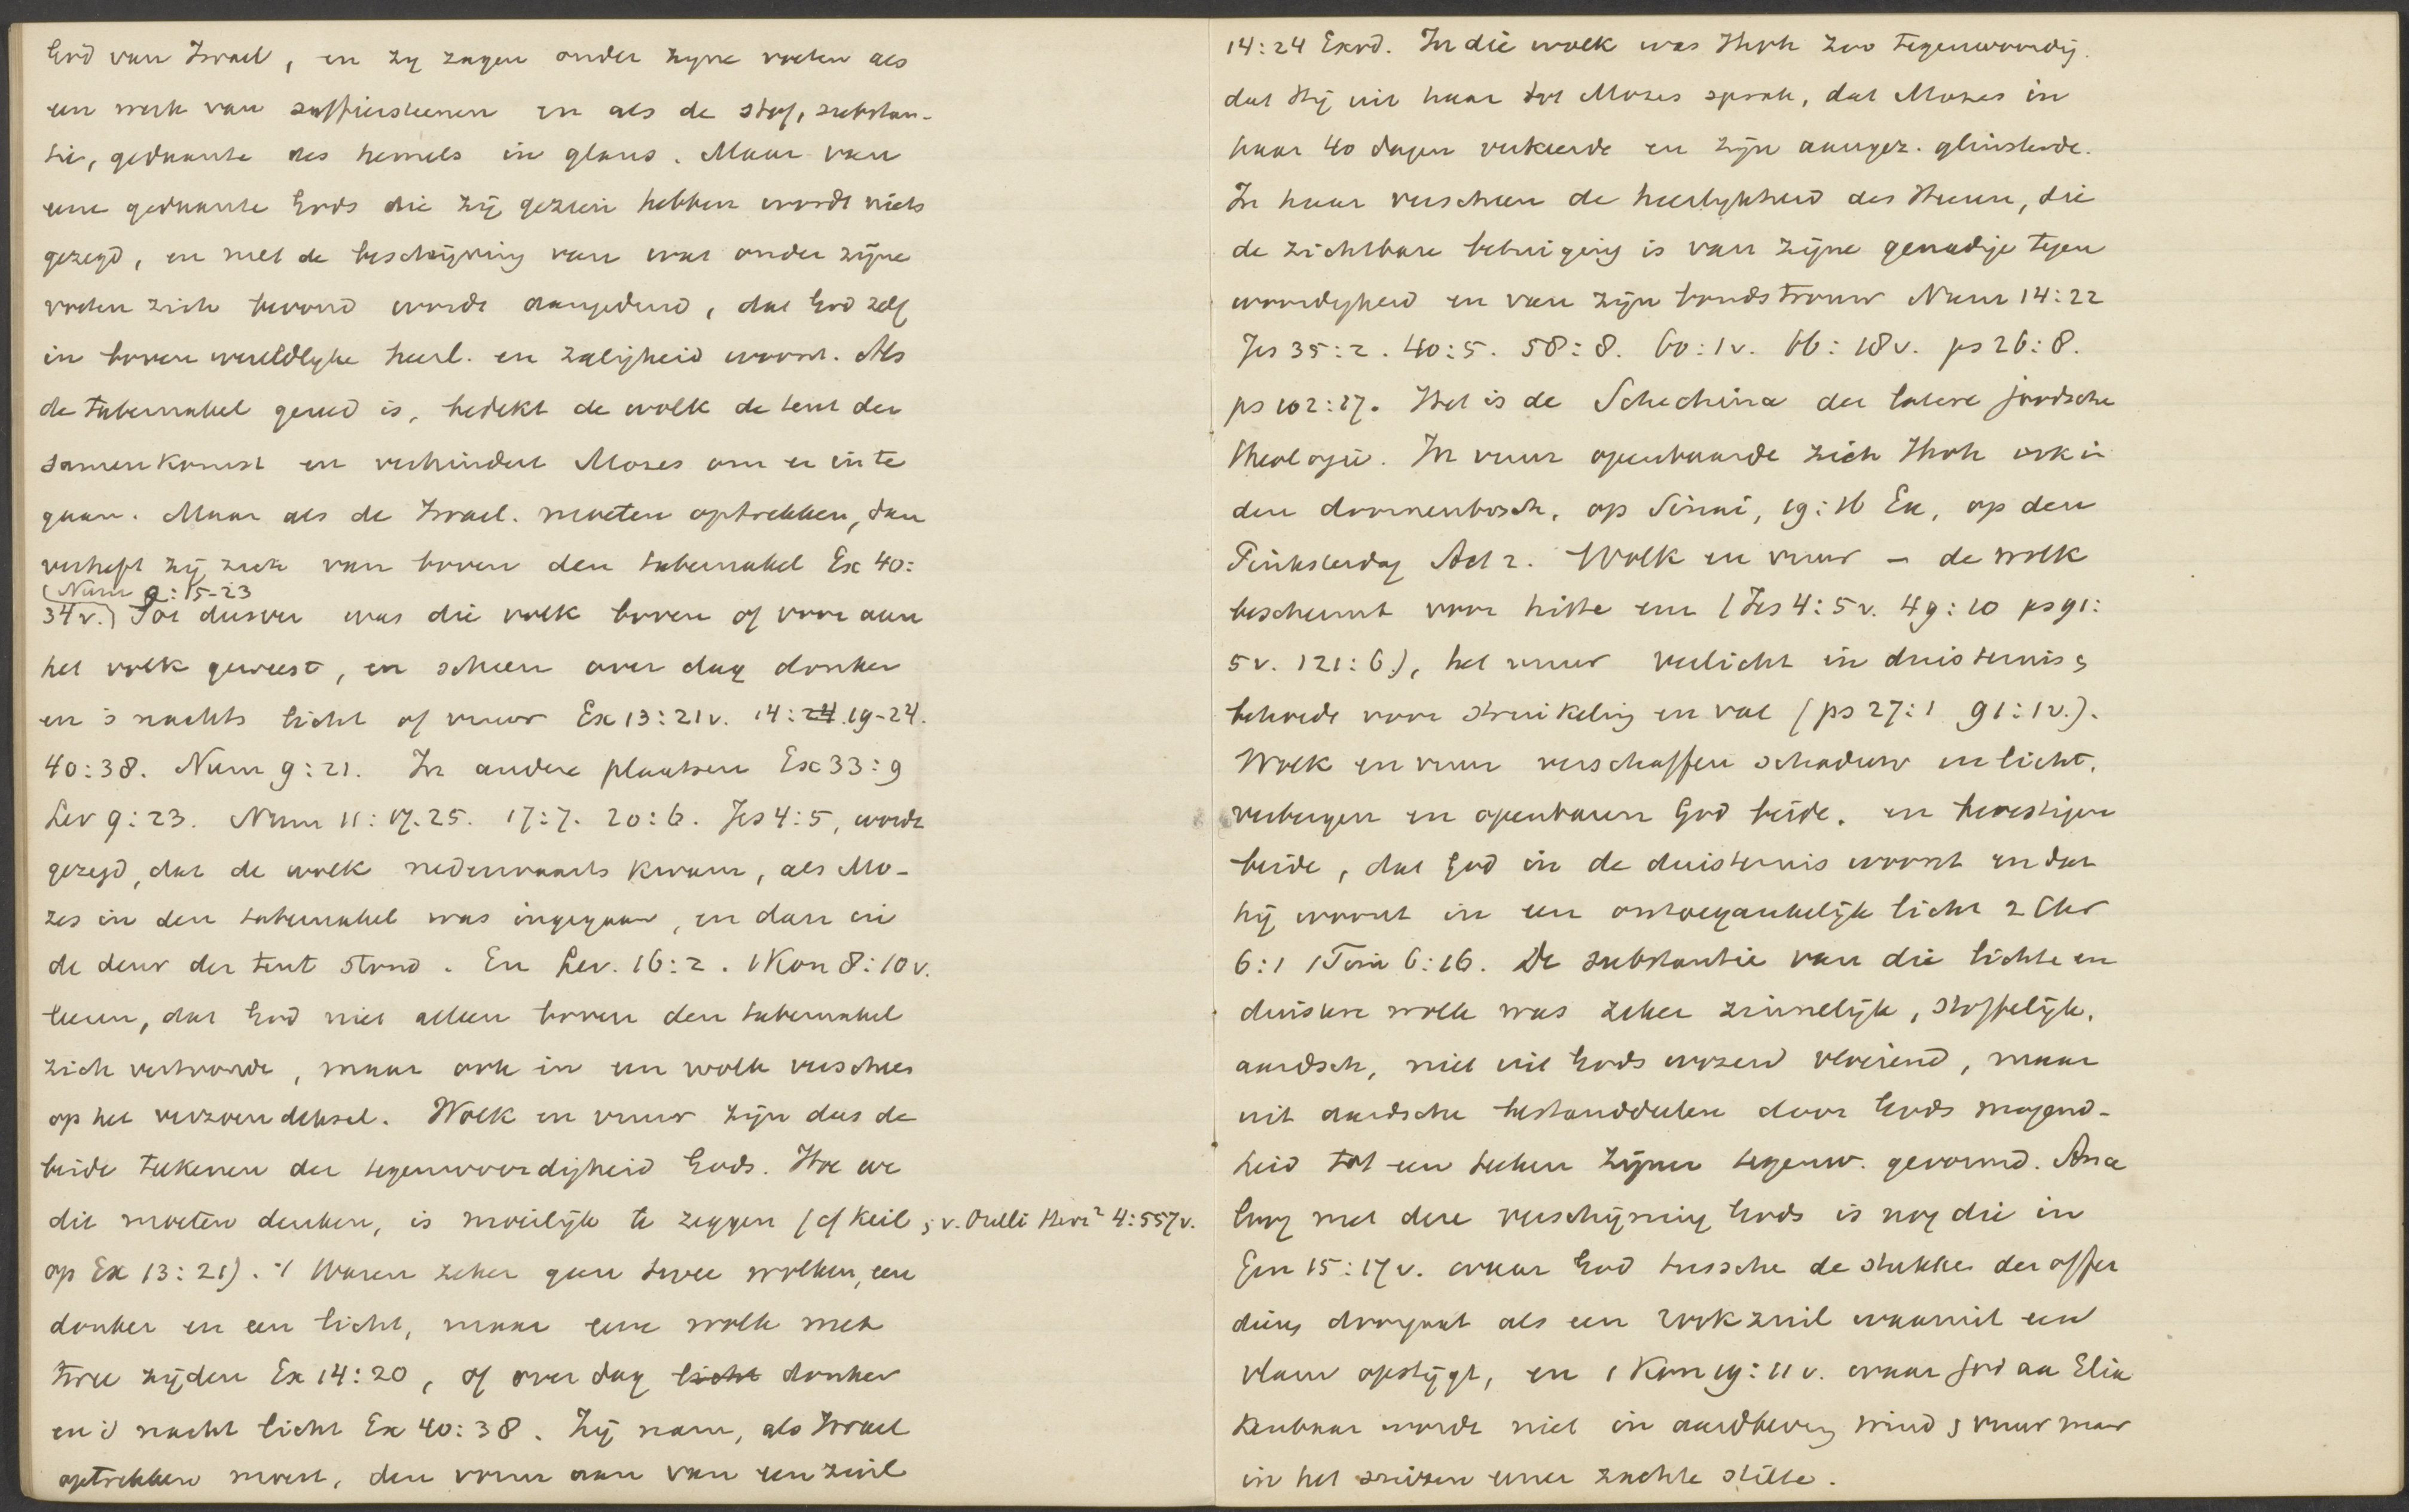 God van Israel, en zy zagen onder zyne voeten als
een werk van saffiersteenen en als de stof, substan-
tie, gedaante des hemels in glans. Maar van
eene gedaante Gods die zij gezien hebben wordt niets
gezegd, en met de beschrijving van wat onder zijne
voeten zich bevond wordt aangeduid, dat God zelf
in boven wereldlyke heerl. en zaligheid woont. Als
de tabernakel gereed is, bedekt de wolk de tent der
samenkomst en verhindert Mozes om er in te
gaan. Maar als de Israel. moeten optrekken, dan
verheft zij zich van boven den tabernakel Ex 40:
(Num 9:15-23
34v.) Tot dusver was die wolk boven of voor aan
het volk geweest, en scheen over dag donker
en 's nachts licht of vuur Ex 13:21v. 14:24.19-24.
40:38. Num 9:21. In andere plaatsen Ex 33:9
Lev 9:23. Num 11:17.25. 17:7. 20:6. Jes 4:5, wordt
gezegd, dat de wolk nederwaarts kwam, als Mo-
zes in den tabernakel was ingegaan, en dan in
de deur der tent stond. En Lev. 16:2. 1 Kon 8:10v.
leeren, dat God niet alleen boven den tabernakel
zich vertoonde, maar ook in een wolk verscheen
op het verzoendeksel. Wolk en vuur zijn dus de
beide teekenen der tegenwoordigheid Gods. Hoe we
dit moeten denken, is moeilijk te zeggen (cf Keil ; v. Orelli Herz² 4:557v.
op Ex 13:21). 't Waren zeker geen twee wolken, een
donker en een licht, maar eene wolk met
twee zijden Ex 14:20, of over dag licht donker
en 's nacht licht Ex 40:38. Zij nam, als Israel
optrekken moest, den vorm aan van een zuil
14:24 Exod. In die wolk was Jhvh zoo tegenwoordig.
dat Hij uit haar tot Mozes sprak, dat Mozes in
haar 40 dagen verkeerde en zijn aangez. glinsterde.
In haar verscheen de heerlykheid des Heeren, die
de zichtbare betuiging is van zijne genadige tegen
woordigheid en van zijn bondstrouw Num 14:22
Jes 35:2. 40:5. 58:8. 60:1v. 66:18v. ps 26:8.
ps 102:17. Het is de Schechina der latere joodsche
theologie. In vuur openbaarde zich Jhvh ook in
den doornenbosch, op Sinai, 19:16 Ex, op den
Pinksterdag Act 2. Wolk en vuur - de wolk
beschermt voor hitte enz (Jes 4:5v. 49:10 ps 91:
5v. 121:6), het vuur verlicht in duisternis,
behoede voor struikeling en val (ps 27:1 91:1v.).
Wolk en vuur verschaffen schaduw en licht,
verbergen en openbaren God beide. en bevestigen
beide, dat God in de duisternis woont en dat
hij woont in een ontoegankelijk licht 2 Chr
6:1 1 Tim 6:16. De substantie van die lichte en
duistere wolk was zeker zinnelijk, stoffelijk,
aardsch, niet uit Gods wezen vloeiend, maar
uit aardsche bestanddeelen door Gods mogend-
heid tot een teeken zijner tegenw. gevormd. Ana
loog met deze verschijning Gods is nog die in
Gen 15:17v. waar God tussche de stukken der offer
diers doorgaat als een rookzuil waaruit een
vlam opstijgt, en 1 Kon 19:11v. waar God aan Elia
kenbaar wordt niet in aardbeving wind, vuur maar
in het suizen eener zachte stilte.